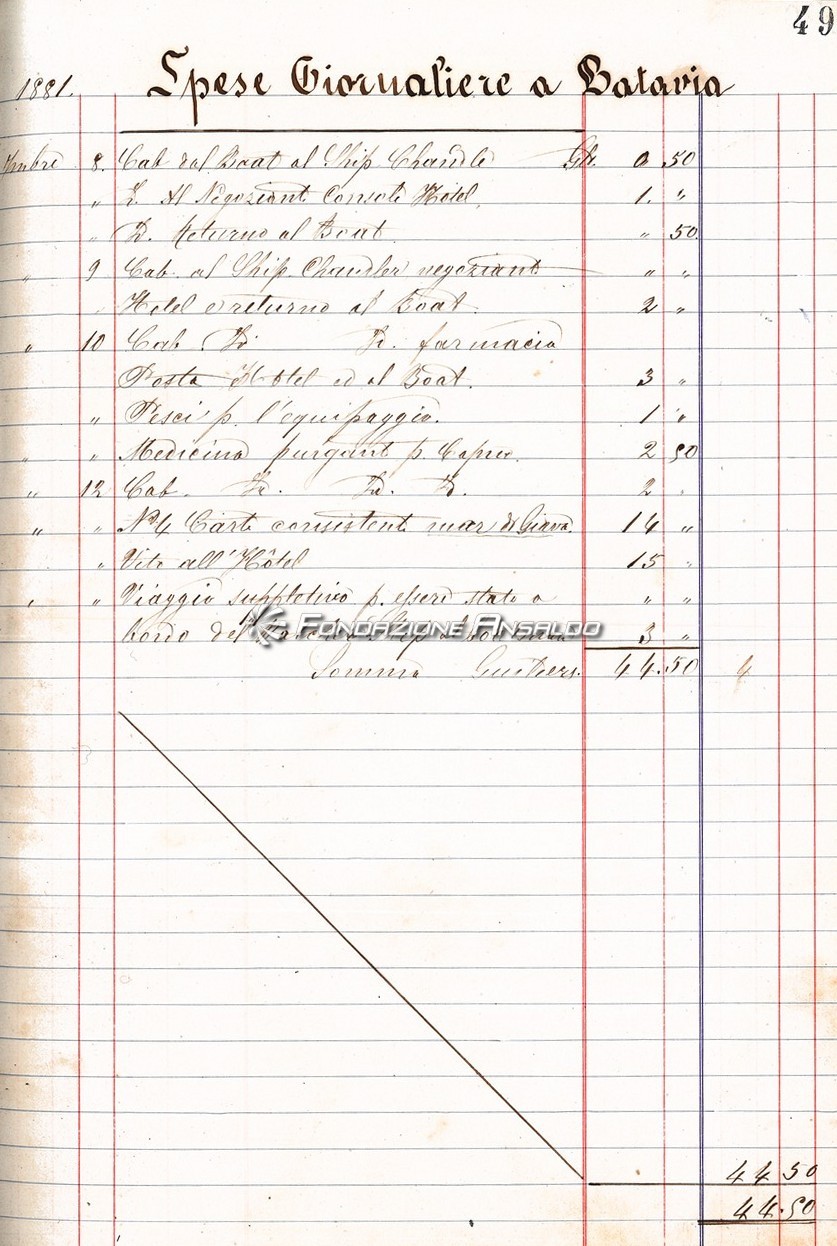 49
1881. Spese Giornaliere a Batavia
8. Cab dal Boat al Ship Chandle 0 50
" Al Negoziant Console Hôtel. 1. "
" D. Returno al Boat " 50.
" 9 Cab al Ship Chandler negoziant " "
Hotel e returno al Boat. 2 "
" 10 Cab farmacia
Posta Hotel ed al Boat. 3 "
" Pesci p. l'equipaggio. 1 "
" " Medicina purgant p. 2 50
" 12 Cab. 2 "
" " No 4 Carte consistent mar di Giava 14 "
" Vito all'Hôtel 15 "
" " Viaggio supplettivo p. essere stato a " "
bordo del 3 "
FONDAZIONE ANSALDO
Somma 44.50
44 50
44.50